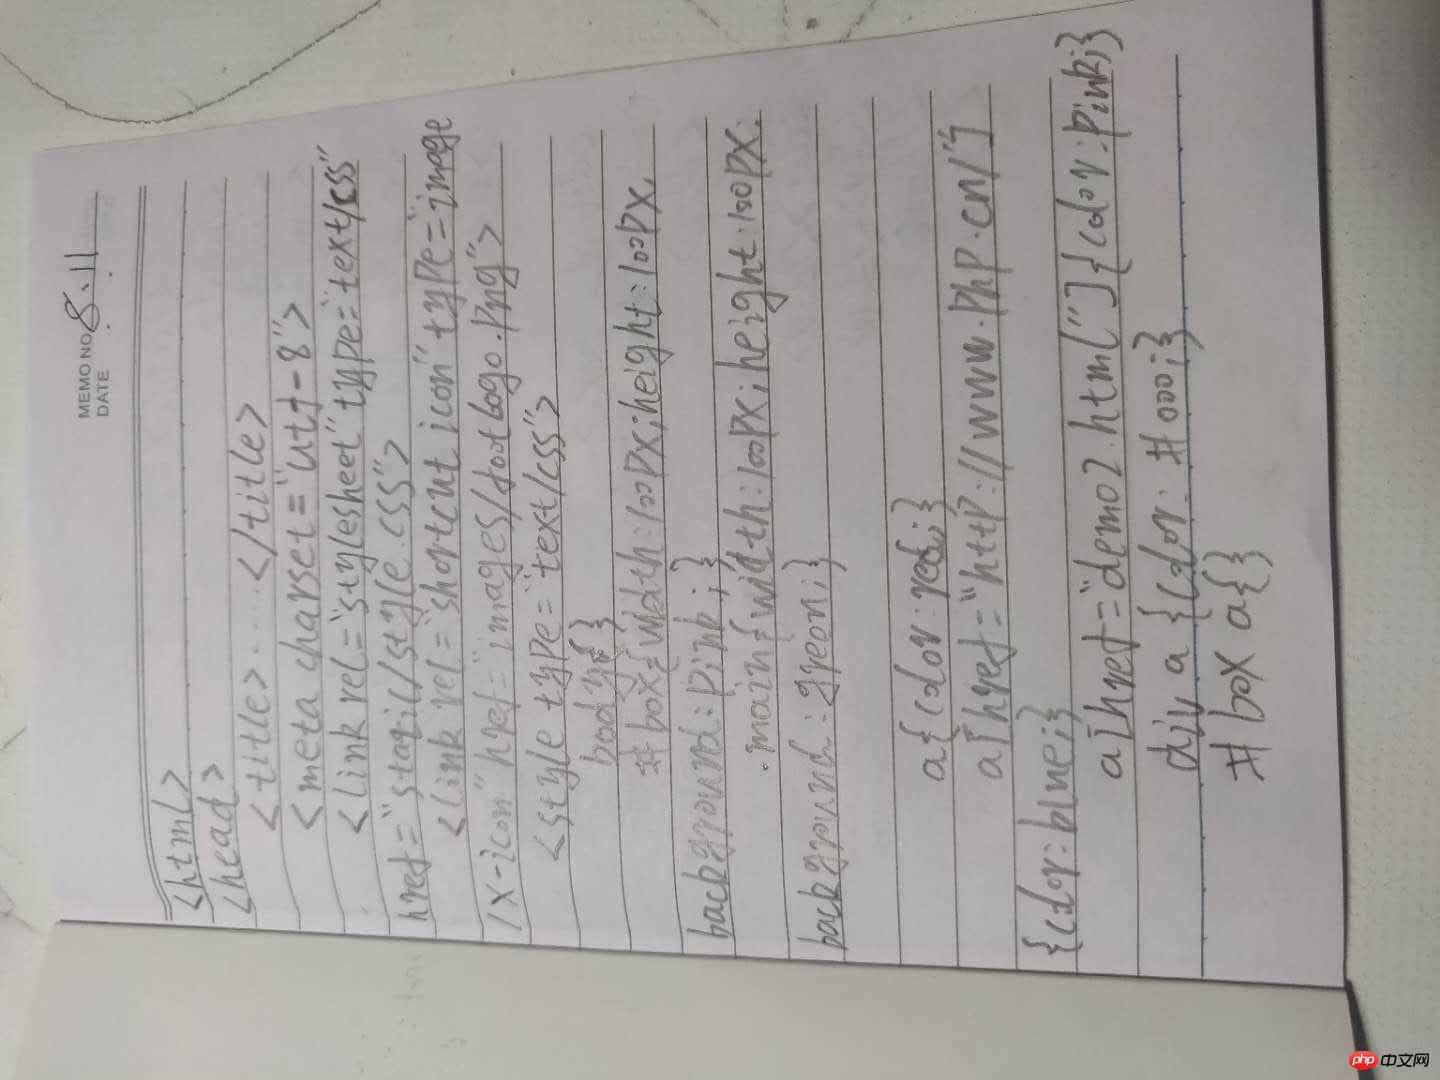 MEMO NO.
DATE 8.11
<html>
<head>
<title>.....</title>
<meta charset="utf-8">
<link rel="stylesheet" type="text/css"
href="static/style.css">
<link rel="shortcut icon" type="image
/x-icon" href="images/footlogo.png">
<style type="text/css">
body{}
#box{width:100px;height:100px.
background:pink;}
.main{width:100px;height:100px.
background:green;}
a{color:red;}
a[href="http://www.php.cn/"]
{color:blue;}
a[href="demo2.html"]{color:pink;}
div a{color:#000;}
#box a{}
php 中文网